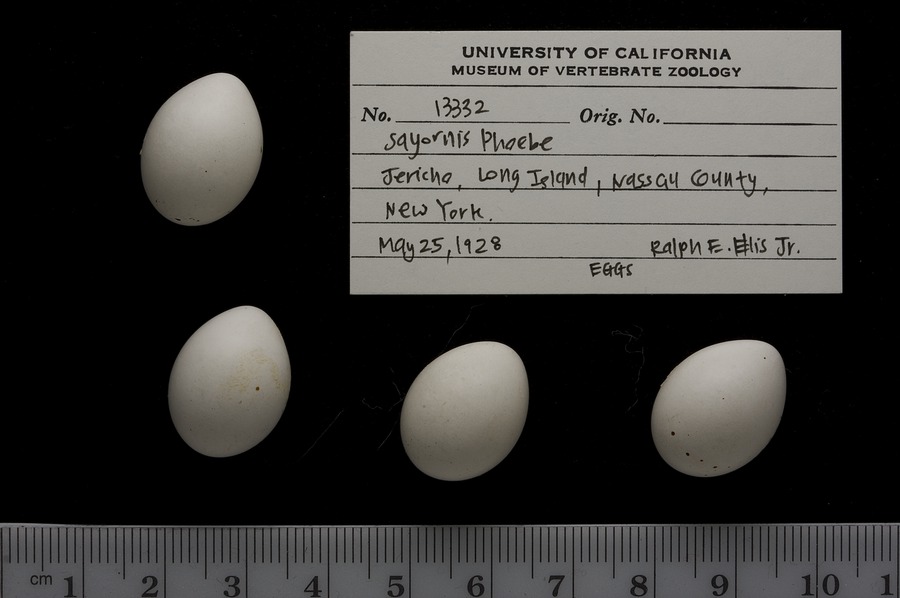 UNIVERSITY OF CALIFORNIA
MUSEUM OF VERTEBRATE ZOOLOGY
No. 13332 Orig. No.
Sayornis Phoebe
Jericho, Long Island, Nassau County,
New York.
May 25, 1928 Ralph E. Ellis Jr.
EGGS
cm 1 2 3 4 5 6 7 8 9 10 1